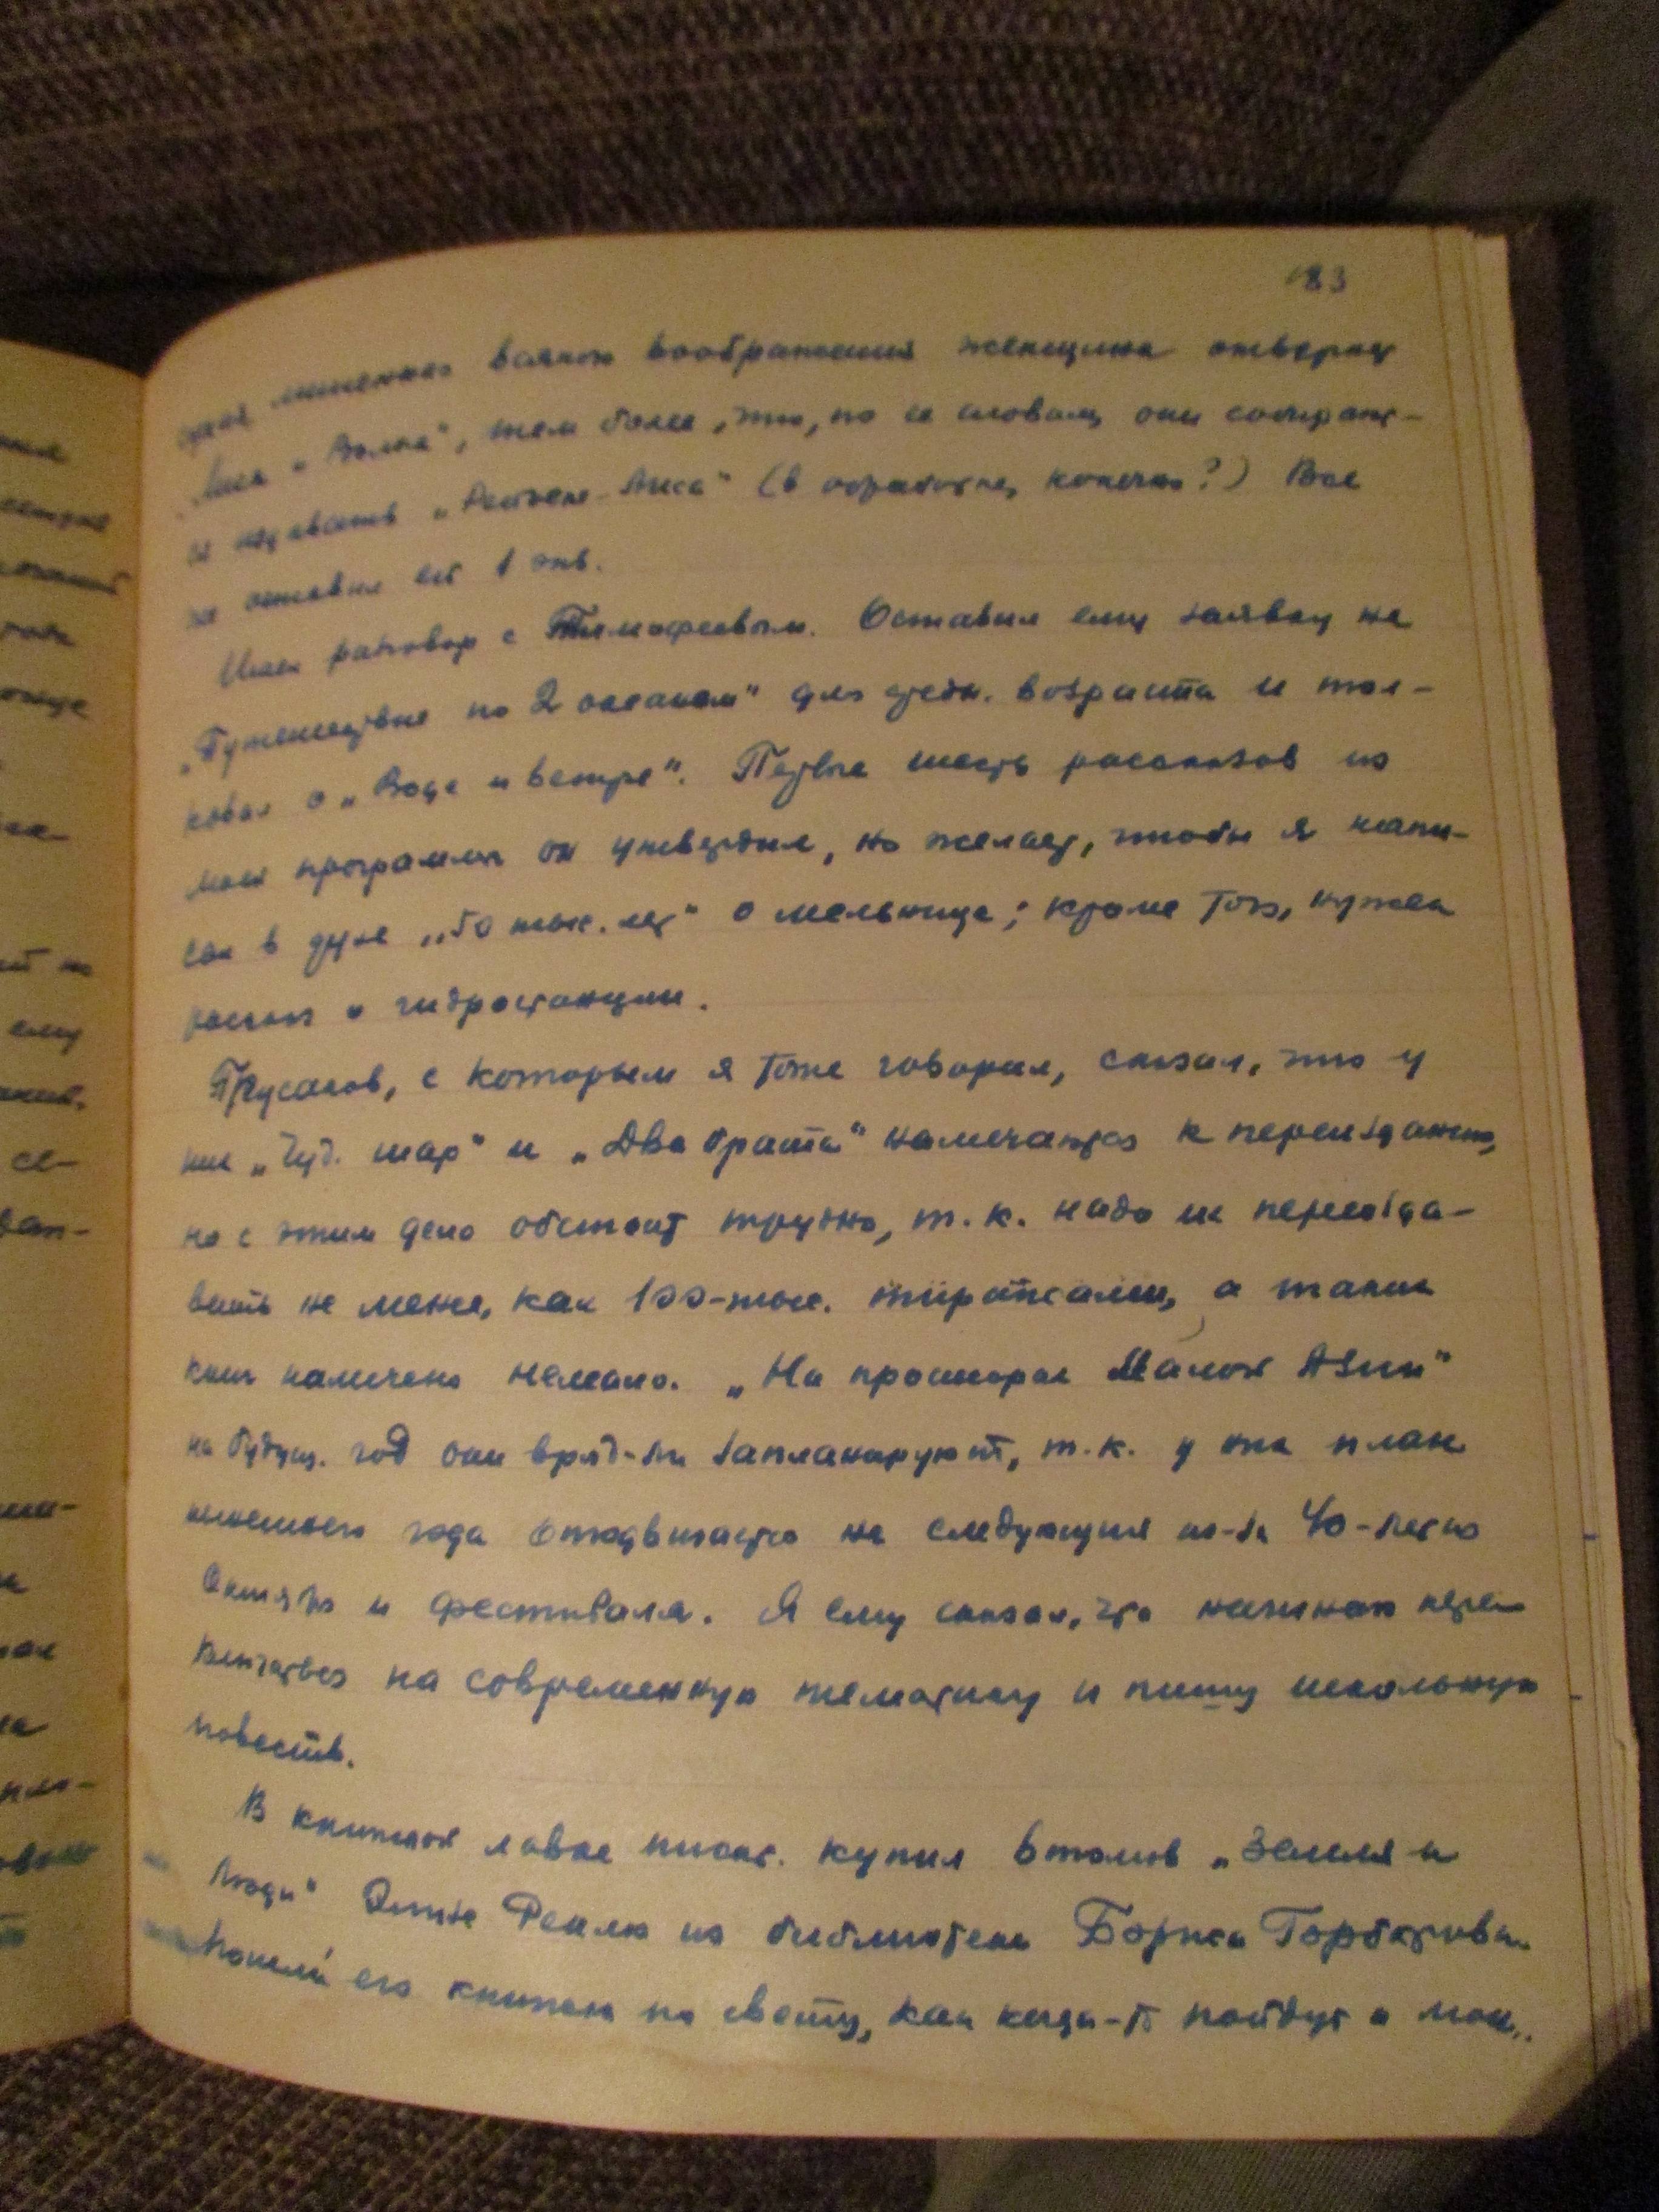 183
лишенная всякого воображения женщина отвергнет
Лиса и Волка", тем более, что, по ее словам, они собирают-
ся издавать „Рейнеке-Лиса" (в обработке, конечно?) Все
же оставил ей 1 экз.
Имел разговор с Тимофеевым. Оставил ему заявку на
„Путешествие по 2 океанам" для средн. возраста и тол-
ковал о „Воде и ветре". Первые шесть рассказов из
моей программы он утвердил, но желает, чтобы я напи-
сал в духе „50 тыс. лет" о мельнице; кроме того, нужен
рассказ о гидростанции.
Прусаков, с которым я тоже говорил, сказал, что у
них „Чуд. шар" и „Два брата" намечаются к переизданию,
но с этим дело обстоит трудно, т.к. надо их переизда-
вать не менее, как 100-тыс. тиражами, а таких
книг намечено немало. „На просторах Малой Азии"
на будущ. год они вряд-ли запланируют, т.к. у них план
нынешнего года отодвигается на следующий из-за 40-летия
Октября и фестиваля. Я ему сказал, что начинаю пере
на современную тематику и пишу школьную
повесть.
В книжной лавке писат. купил 6 томов „Земля и
люди" Элизе Реклю из библиотеки Бориса Горбатова.
Пошли его книжки по свету, как когда-то пойдут и мои..